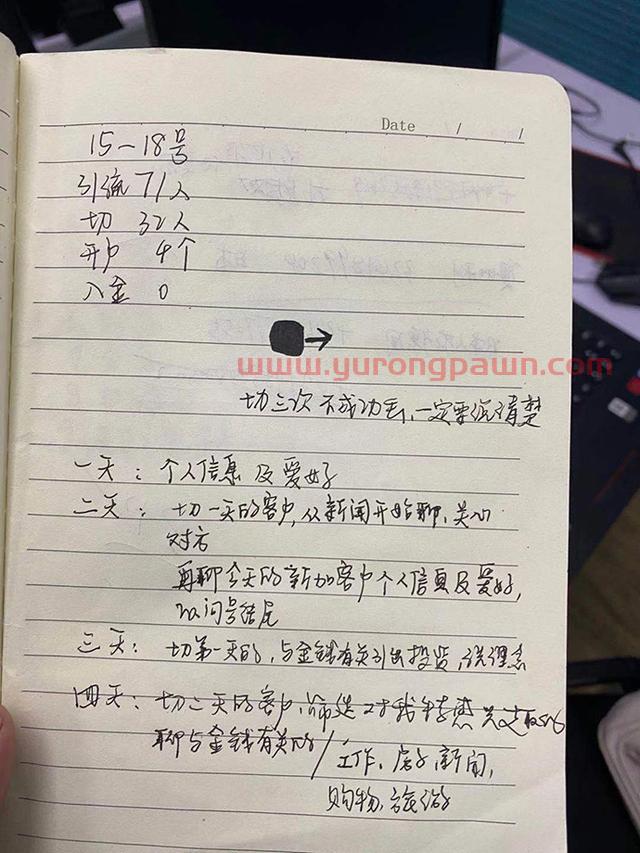 Date / /
15-18号
引流71人
切 32人
开户 4个
入金 0
www.yurongpawn.com
切三次不成功丢,一定要说清楚
一天: 个人信息及爱好
二天: 切一天的客户,从新闻开始聊,关心
对方
再聊今天的新加客户个人信息及爱好,
以问号结尾
三天: 切第一天的,与金钱有关引出投资,说理念
四天: 切二天的客户,筛选对我有感
聊与金钱有关的/工作,房子,新闻,
购物,旅游